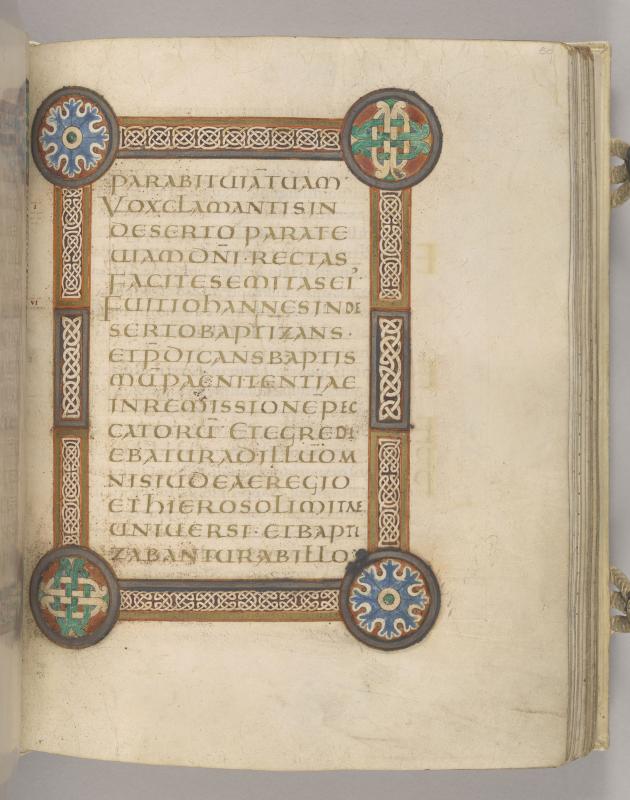 PARABIT UIĀ TUAM
VOX CLAMANTIS IN
DESERTO PARATE
UIAM DN̄I · RECTAS
FACITE SEMITAS EI'
FUIT IOHANNES IN DE
SERTO BAPTIZANS ·
ET P̄DICANS BAPTIS
MŪ PAENITENTIAE
IN REMISSIONĒ PEC
CATORŪ ET EGREDI
EBATUR AD ILLŪ OM
NIS IUDEAE REGIO
ET HIEROSOLIMITAE
UNIUERSI · ET BAPTI
ZABANTUR AB ILLO
VI